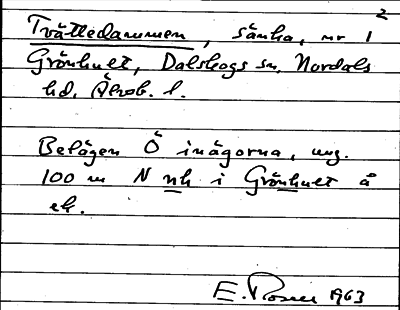 2
Tvättedammen, sänka, nr 1
Grönhult, Dalskogs sn, Nordals
hd, Älvsb. l.
Belägen Ö inägorna, ung.
100 m N nh i Grönhult å
ek.
E. Rosen 1963